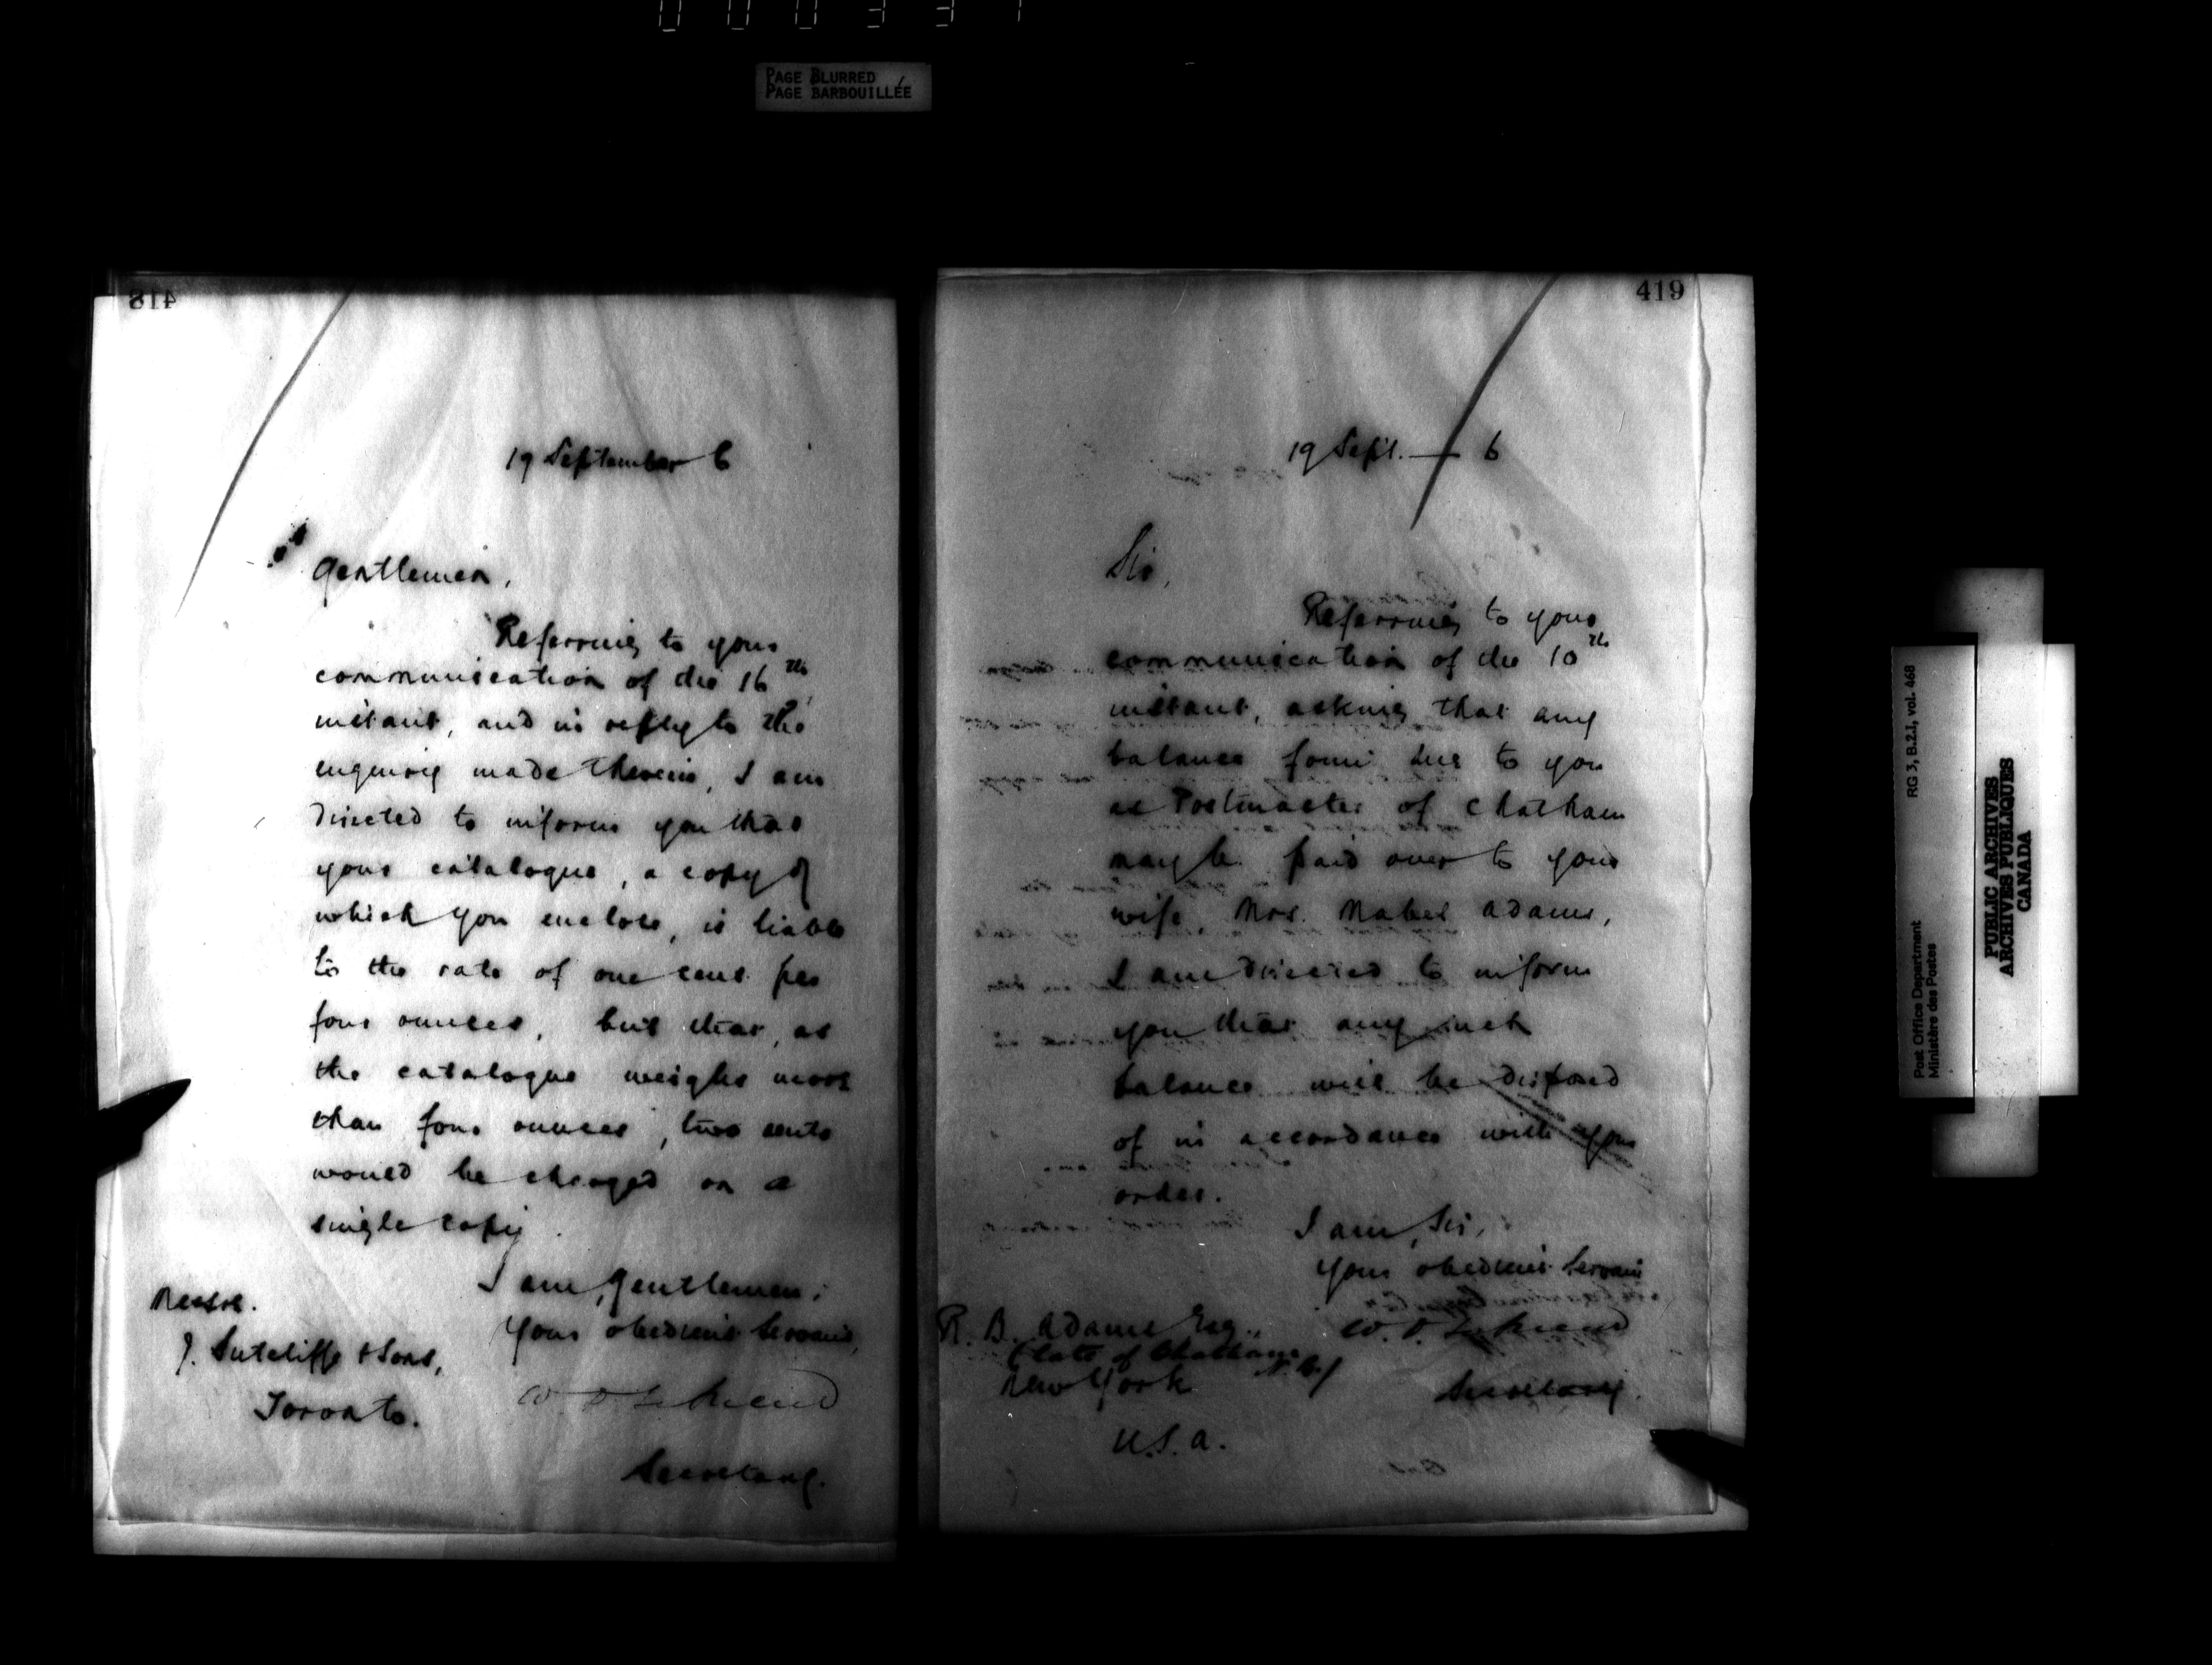 PAGE BLURRED
PAGE BARBOUILLÉE
418
19 September 6
Gentlemen,
Referring to your
communication of the 16th
instant, and in reply to the
enquiry made therein, I am
directed to inform you that
your catalogue, a copy of
which you enclose, is liable
to the rate of one cent per
four ounces, but that, as
the catalogue weighs more
than four ounces, two cents
would be charged on a
single copy.
I am, Gentlemen,
Your obedient Servant,
Secretary.
Messrs.
J. Sutcliffe & Sons,
Toronto.
419
19 Sept. — 6
Sir,
Referring to your
communication of the 10th
instant, asking that any
balance found due to you
as Postmaster of Chatham
may be paid over to your
wife, Mrs. Mabel Adams,
I am directed to inform
you that any such
balance will be disposed
of in accordance with your
order.
I am, Sir,
Your obedient Servant
Secretary.
R. B. Adams Esq.,
(late of Chatham N.B.)
New York
U.S.A.
Post Office Department
Ministère des Postes
RG 3, B.2.1, vol. 468
PUBLIC ARCHIVES
ARCHIVES PUBLIQUES
CANADA